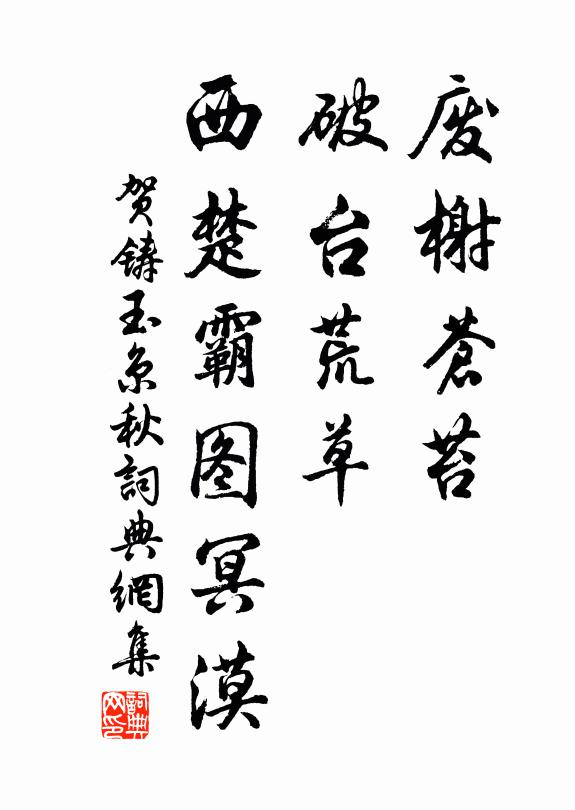 废榭苍苔
破台荒草
西楚霸图冥漠
贺铸玉京秋詞典網集
詞典
网印